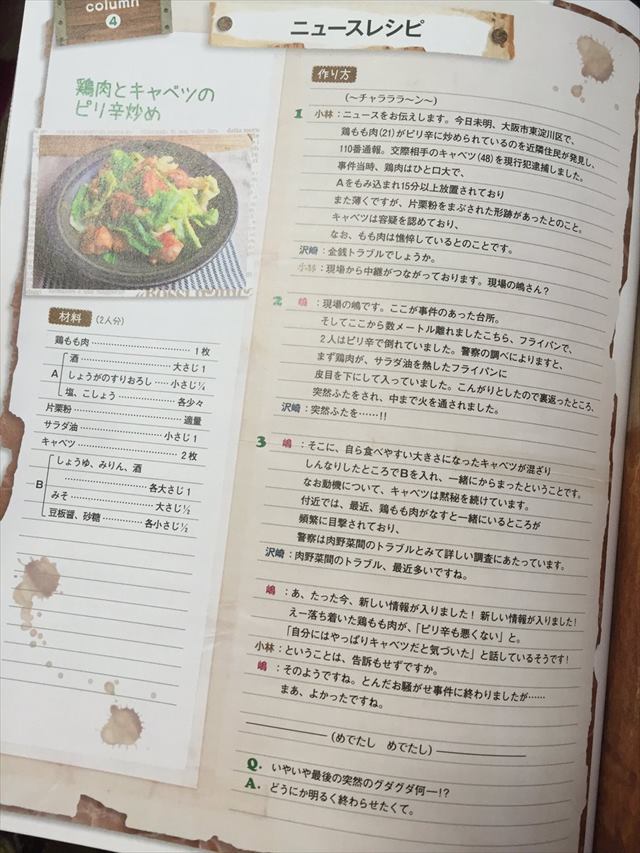 column
4
ニュースレシピ
鶏肉とキャベツの
ピリ辛炒め
材料 (2人分)
鶏もも肉……………………1枚
A
酒……………………大さじ1
しょうがのすりおろし……小さじ¼
塩、こしょう……………各少々
片栗粉……………………適量
サラダ油……………………小さじ1
キャベツ……………………2枚
B
しょうゆ、みりん、酒
……………………各大さじ1
みそ……………………大さじ½
豆板醤、砂糖……………各小さじ½
作り方
(〜チャララララ〜ン〜)
1 小林:ニュースをお伝えします。今日未明、大阪市東淀川区で、
鶏もも肉(21)がピリ辛に炒められているのを近隣住民が発見し、
110番通報。交際相手のキャベツ(48)を現行犯逮捕しました。
事件当時、鶏肉はひと口大で、
Aをもみ込まれ15分以上放置されており
また薄くですが、片栗粉をまぶされた形跡があったとのこと。
キャベツは容疑を認めており、
なお、もも肉は憔悴しているとのことです。
沢崎:金銭トラブルでしょうか。
小林:現場から中継がつながっております。現場の嶋さん?
2 嶋:現場の嶋です。ここが事件のあった台所。
そしてここから数メートル離れましたこちら、フライパンで、
2人はピリ辛で倒れていました。警察の調べによりますと、
まず鶏肉が、サラダ油を熱したフライパンに
皮目を下にして入っていました。こんがりとしたので裏返ったところ、
突然ふたをされ、中まで火を通されました。
沢崎:突然ふたを……!!
3 嶋:そこに、自ら食べやすい大きさになったキャベツが混ざり
しんなりしたところでBを入れ、一緒にからまったということです。
なお動機について、キャベツは黙秘を続けています。
付近では、最近、鶏もも肉がなすと一緒にいるところが
頻繁に目撃されており、
警察は肉野菜間のトラブルとみて詳しい調査にあたっています。
沢崎:肉野菜間のトラブル、最近多いですね。
嶋:あ、たった今、新しい情報が入りました! 新しい情報が入りました!
えー落ち着いた鶏もも肉が、「ピリ辛も悪くない」と。
「自分にはやっぱりキャベツだと気づいた」と話しているそうです!
小林:ということは、告訴もせずですか。
嶋:そのようですね。とんだお騒がせ事件に終わりましたが……
まあ、よかったですね。
(めでたし めでたし)
Q. いやいや最後の突然のグダグダ何―!?
A. どうにか明るく終わらせたくて。